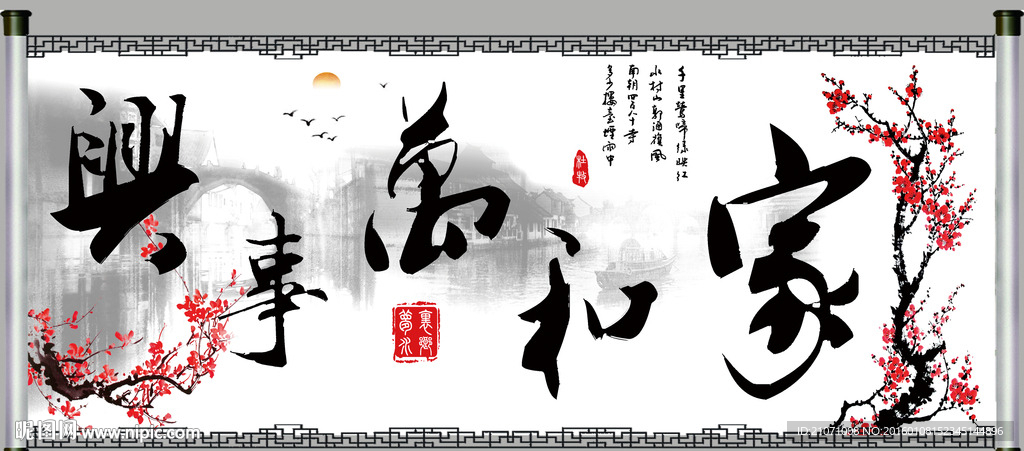 家和萬事興
千里鶯啼綠映紅
水村山郭酒旗風
南朝四百八十寺
多少樓臺煙雨中
杜牧
夢裏
水鄉
昵图网 www.nipic.com
ID:21071008 NO:20160108152345144896